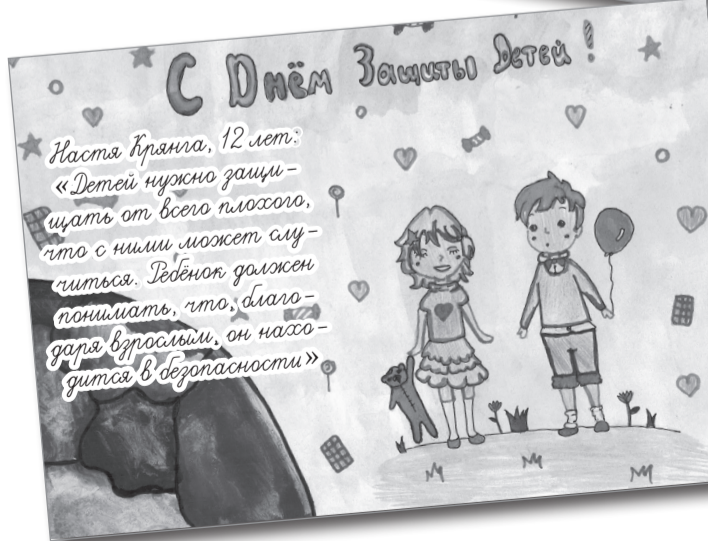 С Днём Защиты Детей!
Настя Крянга, 12 лет:
«Детей нужно защи-
щать от всего плохого,
что с ними может слу-
читься. Ребёнок должен
понимать, что, благо-
даря взрослым, он нахо-
дится в безопасности»